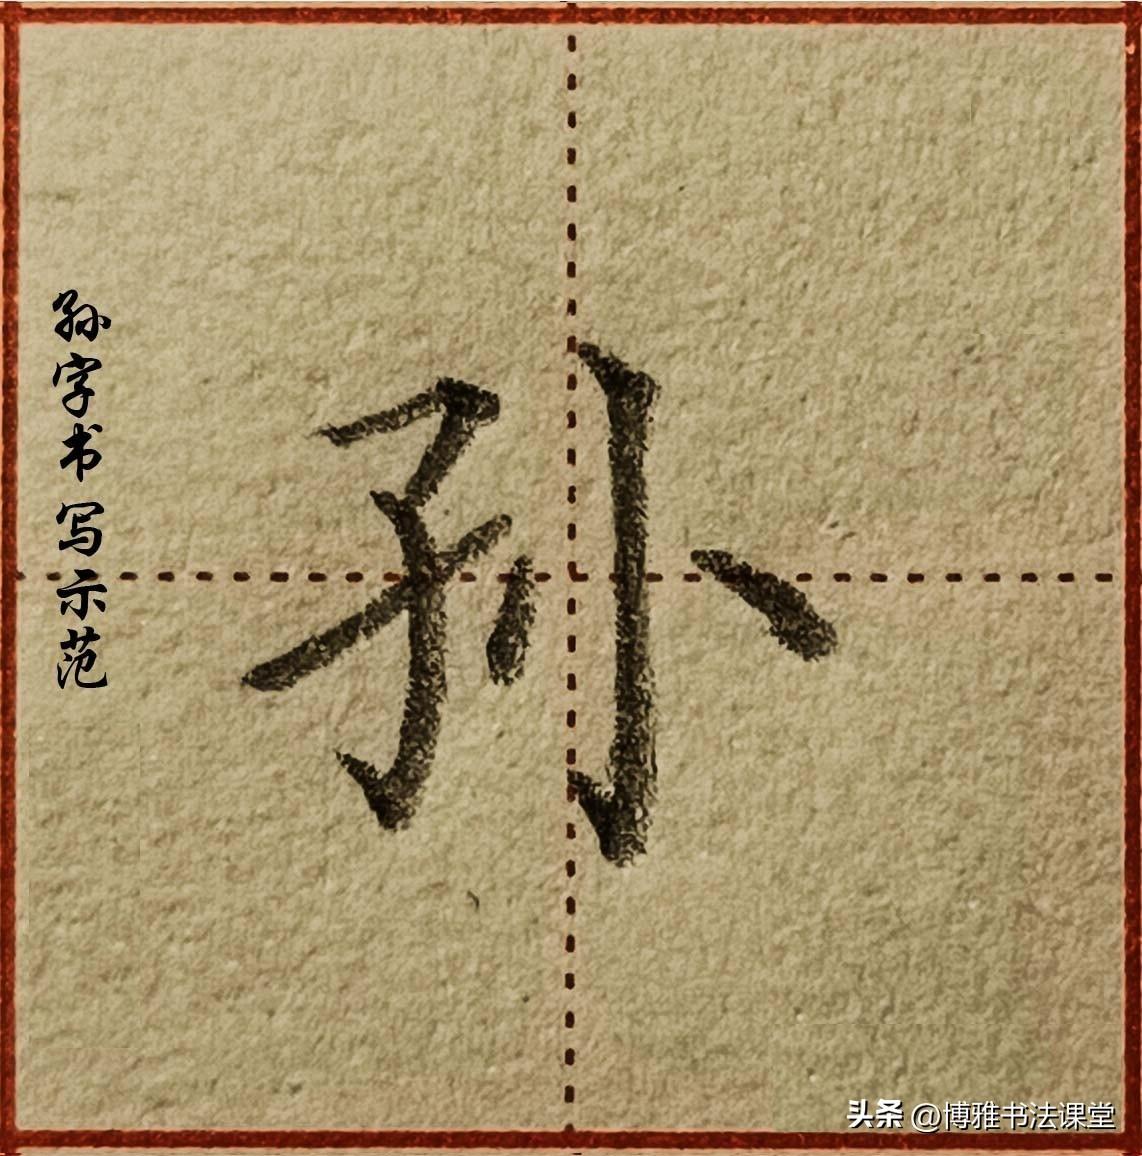 孙字书写示范
孙
头条 @博雅书法课堂